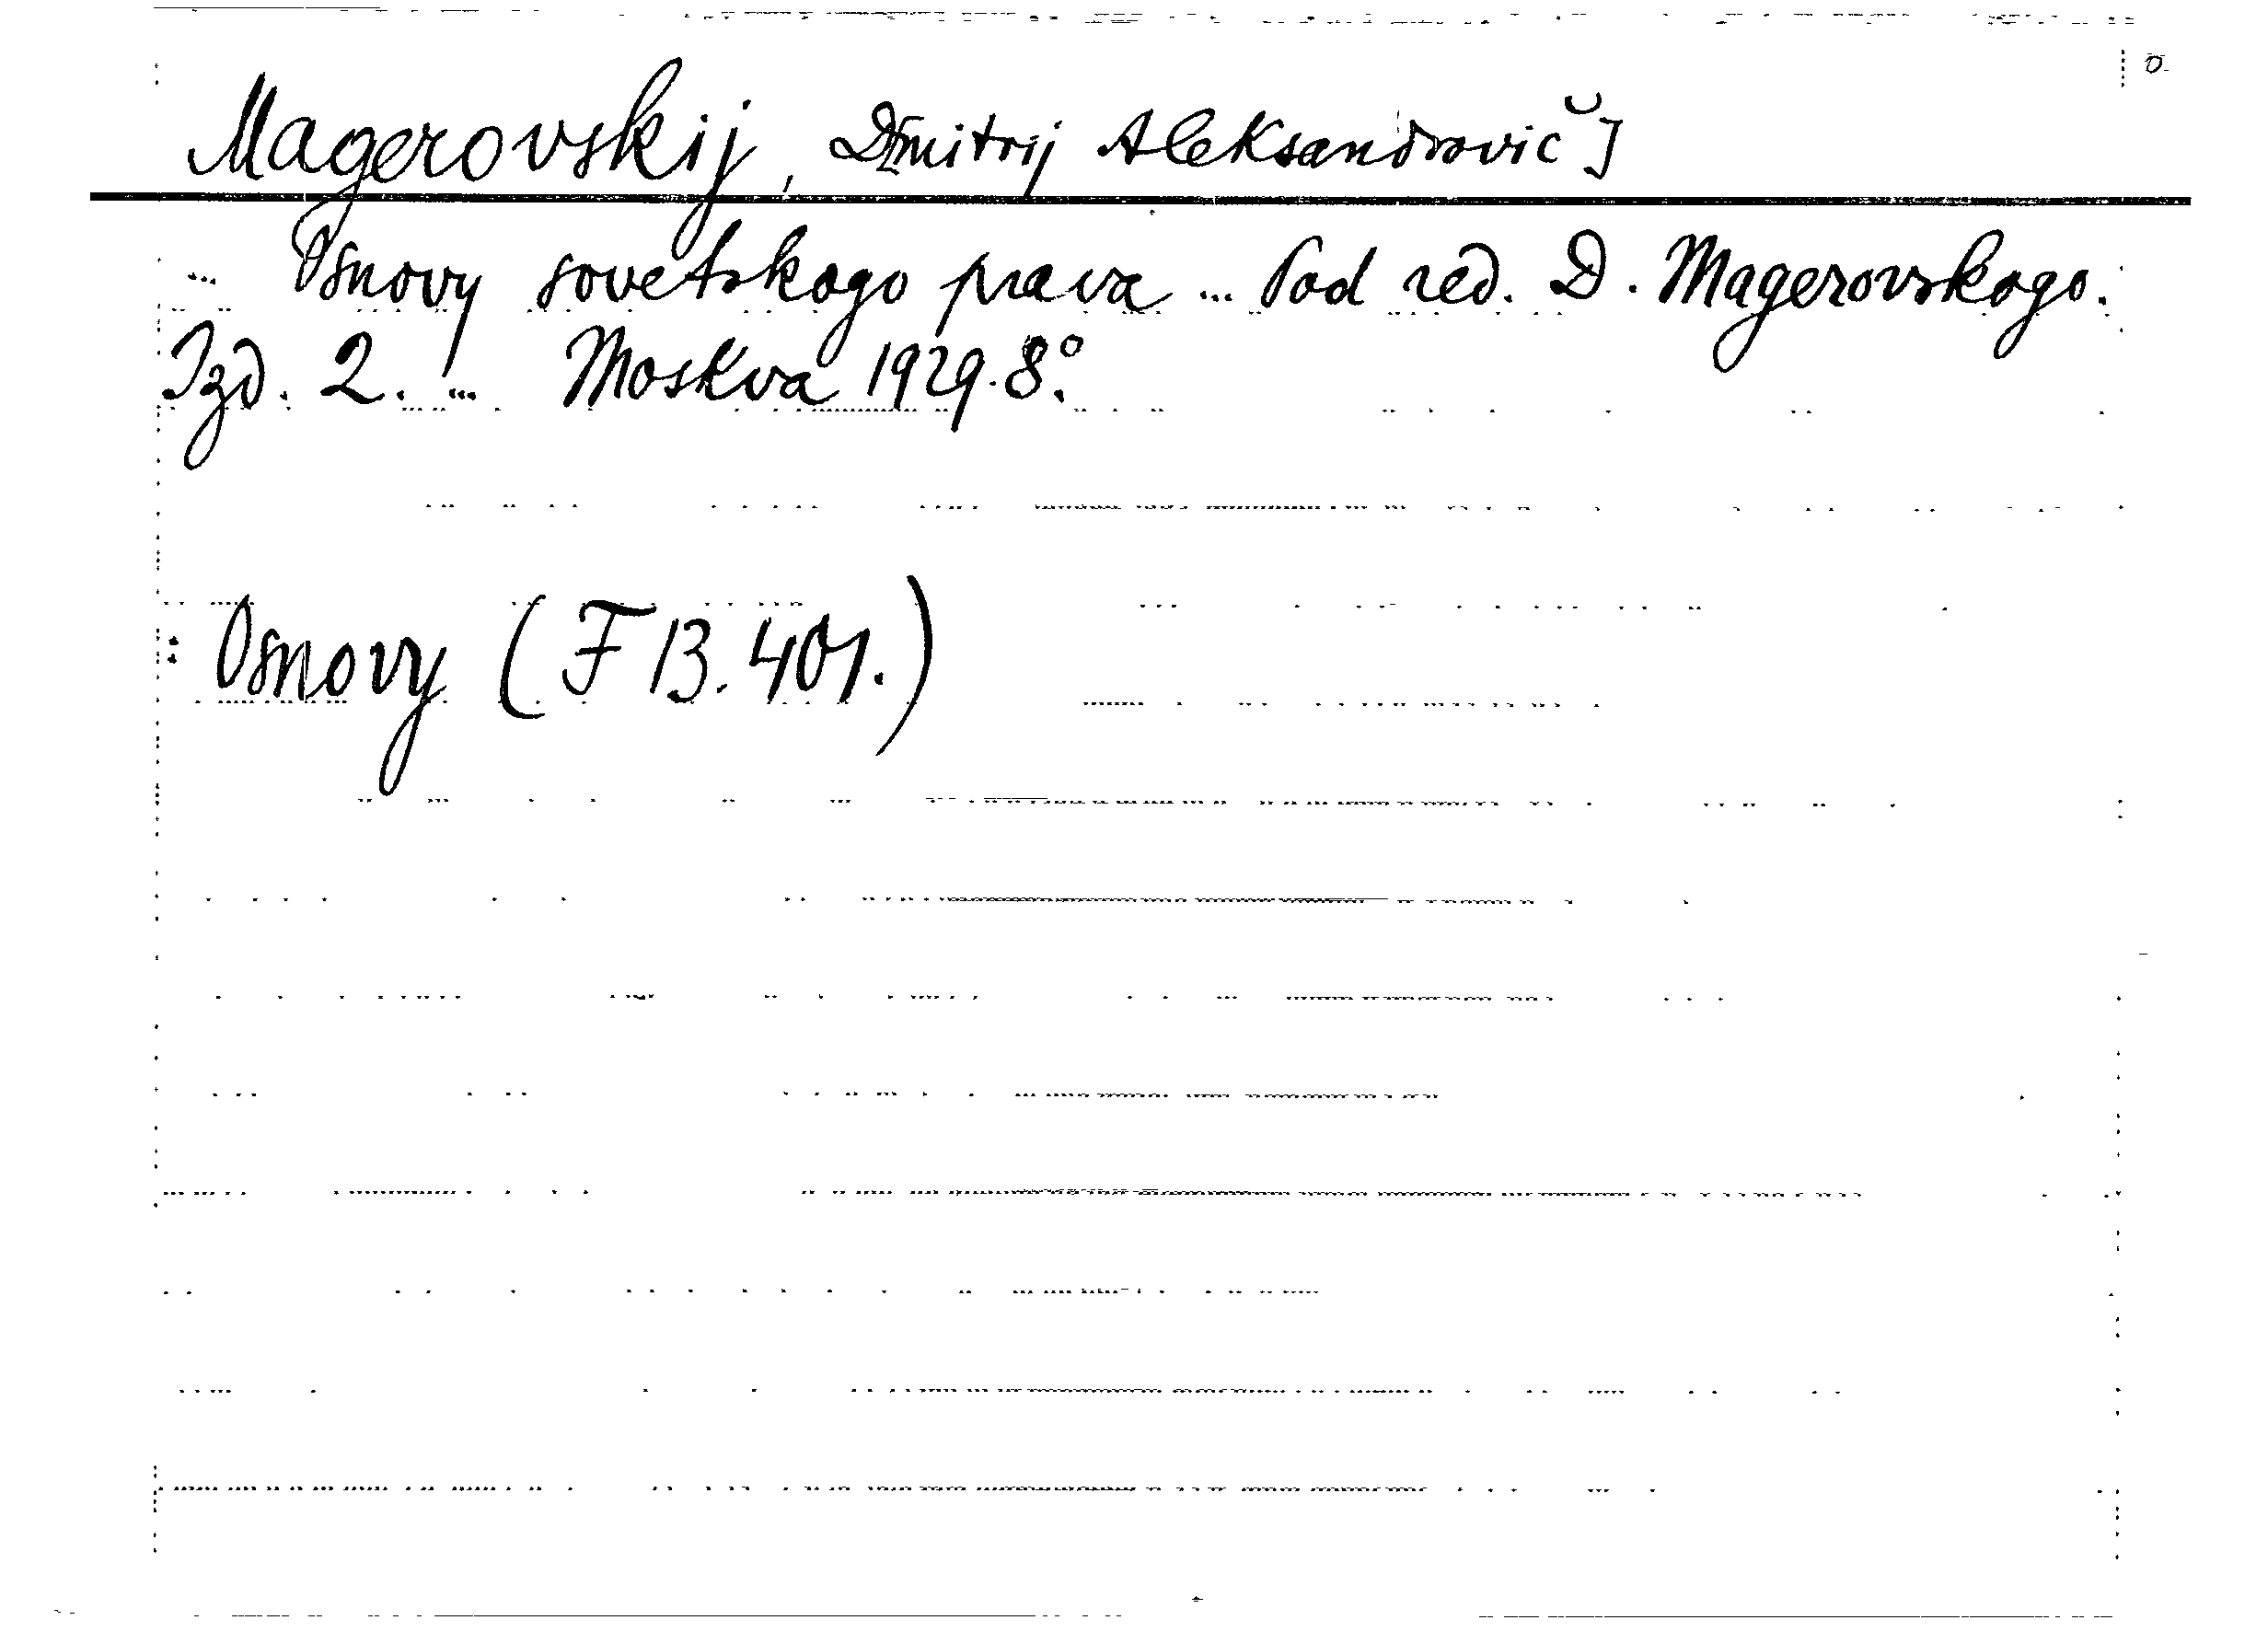 Magerovskij, D[mitrij Aleksandrovič]
... Osnovy sovetskogo prava ... Pod red. D. Magerovskogo.
Izd. 2. ... Moskva 1929. 8°.
: Osnovy (F 13. 401.)